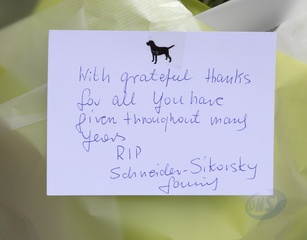 With grateful thanks
for all You have
given throughout many
Years
RIP
Schneider-Sikorsky
family
BNS